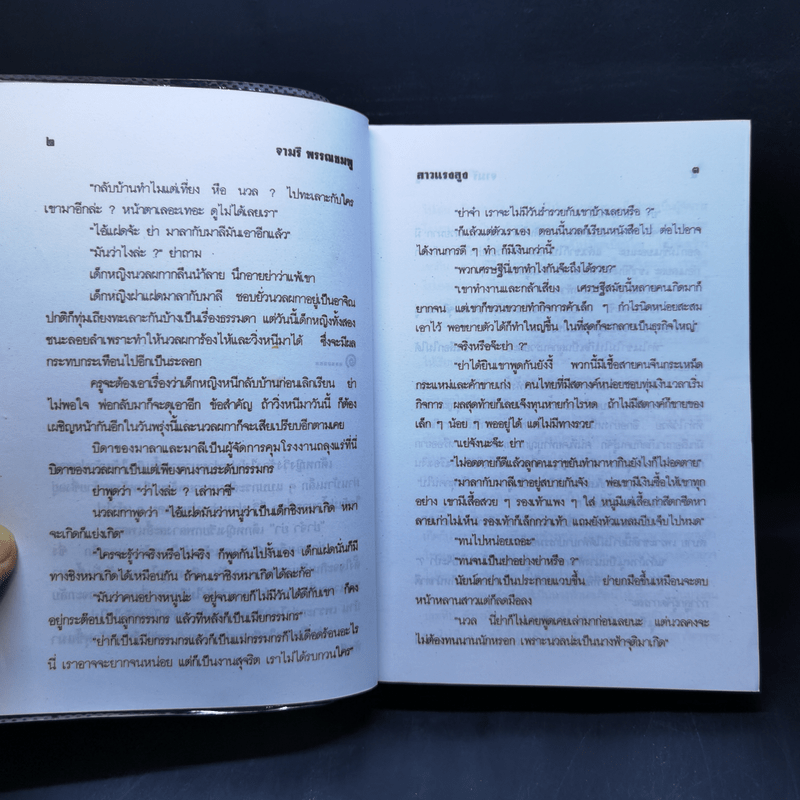 ๒
จามรี พรรณชมพู
"กลับบ้านทำไมแต่เที่ยง หือ นวล ? ไปทะเลาะกับใคร
เขามาอีกล่ะ ? หน้าตาเลอะเทอะ ดูไม่ได้เลยเรา"
"ไอ้แฝดจ้ะ ย่า มาลากับมาลีมันเอาอีกแล้ว"
"มันว่าไงล่ะ ?" ย่าถาม
เด็กหญิงนวลผกากลืนน้ำลาย นึกอายย่าว่าแพ้เขา
เด็กหญิงฝาแฝดมาลากับมาลี ชอบยั่วนวลผกาอยู่เป็นอาจิณ
ปกติก็ทุ่มเถียงทะเลาะกันบ้างเป็นเรื่องธรรมดา แต่วันนี้เด็กหญิงทั้งสอง
ชนะลอยลำเพราะทำให้นวลผการ้องไห้และวิ่งหนีมาได้ ซึ่งจะมีผล
กระทบกระเทือนไปอีกเป็นระลอก
ครูจะต้องเอาเรื่องว่าเด็กหญิงหนีกลับบ้านก่อนเลิกเรียน ย่า
ไม่พอใจ พ่อกลับมาก็จะดุเอาอีก ข้อสำคัญ ถ้าวิ่งหนีมาวันนี้ ก็ต้อง
เผชิญหน้ากันอีกในวันพรุ่งนี้และนวลผกาก็จะเสียเปรียบอีกตามเคย
บิดาของมาลาและมาลีเป็นผู้จัดการคุมโรงงานถลุงแร่ที่นี่
บิดาของนวลผกาเป็นแต่เพียงคนงานระดับกรรมกร
ย่าพูดว่า "ว่าไงล่ะ ? เล่ามาซี"
นวลผกาพูดว่า "ไอ้แฝดมันว่าหนูว่าเป็นเด็กชิงหมาเกิด หมา
จะเกิดก็แย่งเกิด"
"ใครจะรู้ว่าจริงหรือไม่จริง ก็พูดกันไปงั้นเอง เด็กแฝดนั่นก็มี
ทางชิงหมาเกิดได้เหมือนกัน ถ้าคนเราชิงหมาเกิดได้ละก้อ"
"มันว่าคนอย่างหนูน่ะ อยู่จนตายก็ไม่มีวันได้ดีกับเขา ก็คง
อยู่กระต๊อบเป็นลูกกรรมกร แล้วทีหลังก็เป็นเมียกรรมกร"
"ย่าก็เป็นเมียกรรมกรแล้วก็เป็นแม่กรรมกรก็ไม่เดือดร้อนอะไร
นี่ เราอาจจะยากจนหน่อย แต่ก็เป็นงานสุจริต เราไม่ได้รบกวนใคร"
สาวแรงสูง
๓
"ย่าจ๋า เราจะไม่มีวันร่ำรวยกับเขาบ้างเลยหรือ ?"
"ก็แล้วแต่ตัวเราเอง ตอนนี้นวลก็เรียนหนังสือไป ต่อไปอาจ
ได้งานการดี ๆ ทำ ก็มีเงินกว่านี้"
"พวกเศรษฐีนี่เขาทำไงกันจ๊ะถึงได้รวย?"
"เขาทำงานและกล้าเสี่ยง เศรษฐีสมัยนี้หลายคนเกิดมาก็
ยากจน แต่เขาก็ขวนขวายทำกิจการค้าเล็ก ๆ กำไรนิดหน่อยสะสม
เอาไว้ พอขยายตัวได้ก็ทำใหญ่ขึ้น ในที่สุดก็จะกลายเป็นธุรกิจใหญ่"
"จริงหรือจ๊ะย่า ?"
"ย่าได้ยินเขาพูดกันยังงี้ พวกนี้มีเชื้อสายคนจีนกระเหม็ด
กระแหม่และค้าขายเก่ง คนไทยที่มีสตางค์หน่อยชอบทุ่มเงินเวลาเริ่ม
กิจการ ผลสุดท้ายก็เลยเจ๊งทุนหายกำไรหด ถ้าไม่มีสตางค์ก็ขายของ
เล็ก ๆ น้อย ๆ พออยู่ได้ แต่ไม่มีทางรวย"
"แย่จังนะจ๊ะ ย่า"
"ไม่อดตายก็ดีแล้วลูกคนเราขยันทำมาหากินยังไงก็ไม่อดตาย"
"มาลากับมาลีเขาอยู่สบายกันจัง พ่อเขามีเงินซื้อให้เขาทุก
อย่าง เขามีเสื้อสวย ๆ รองเท้าแพง ๆ ใส่ หนูมีแต่เสื้อเก่าสีตกซีดหา
ลายเก่าไม่เห็น รองเท้าก็เล็กกว่าเท้า แถมยังหัวแหลมบีบเจ็บไปหมด"
"ทนไปหน่อยเถอะ"
"ทนจนเป็นย่าอย่างย่าหรือ ?"
นัยน์ตาย่าเป็นประกายแวบขึ้น ย่ายกมือขึ้นเหมือนจะตบ
หน้าหลานสาวแต่ก็ลดมือลง
"นวล นี่ย่าก็ไม่เคยพูดเคยเล่ามาก่อนเลยนะ แต่นวลคงจะ
ไม่ต้องทนนานนักหรอก เพราะนวลน่ะเป็นนางฟ้าจุติมาเกิด"